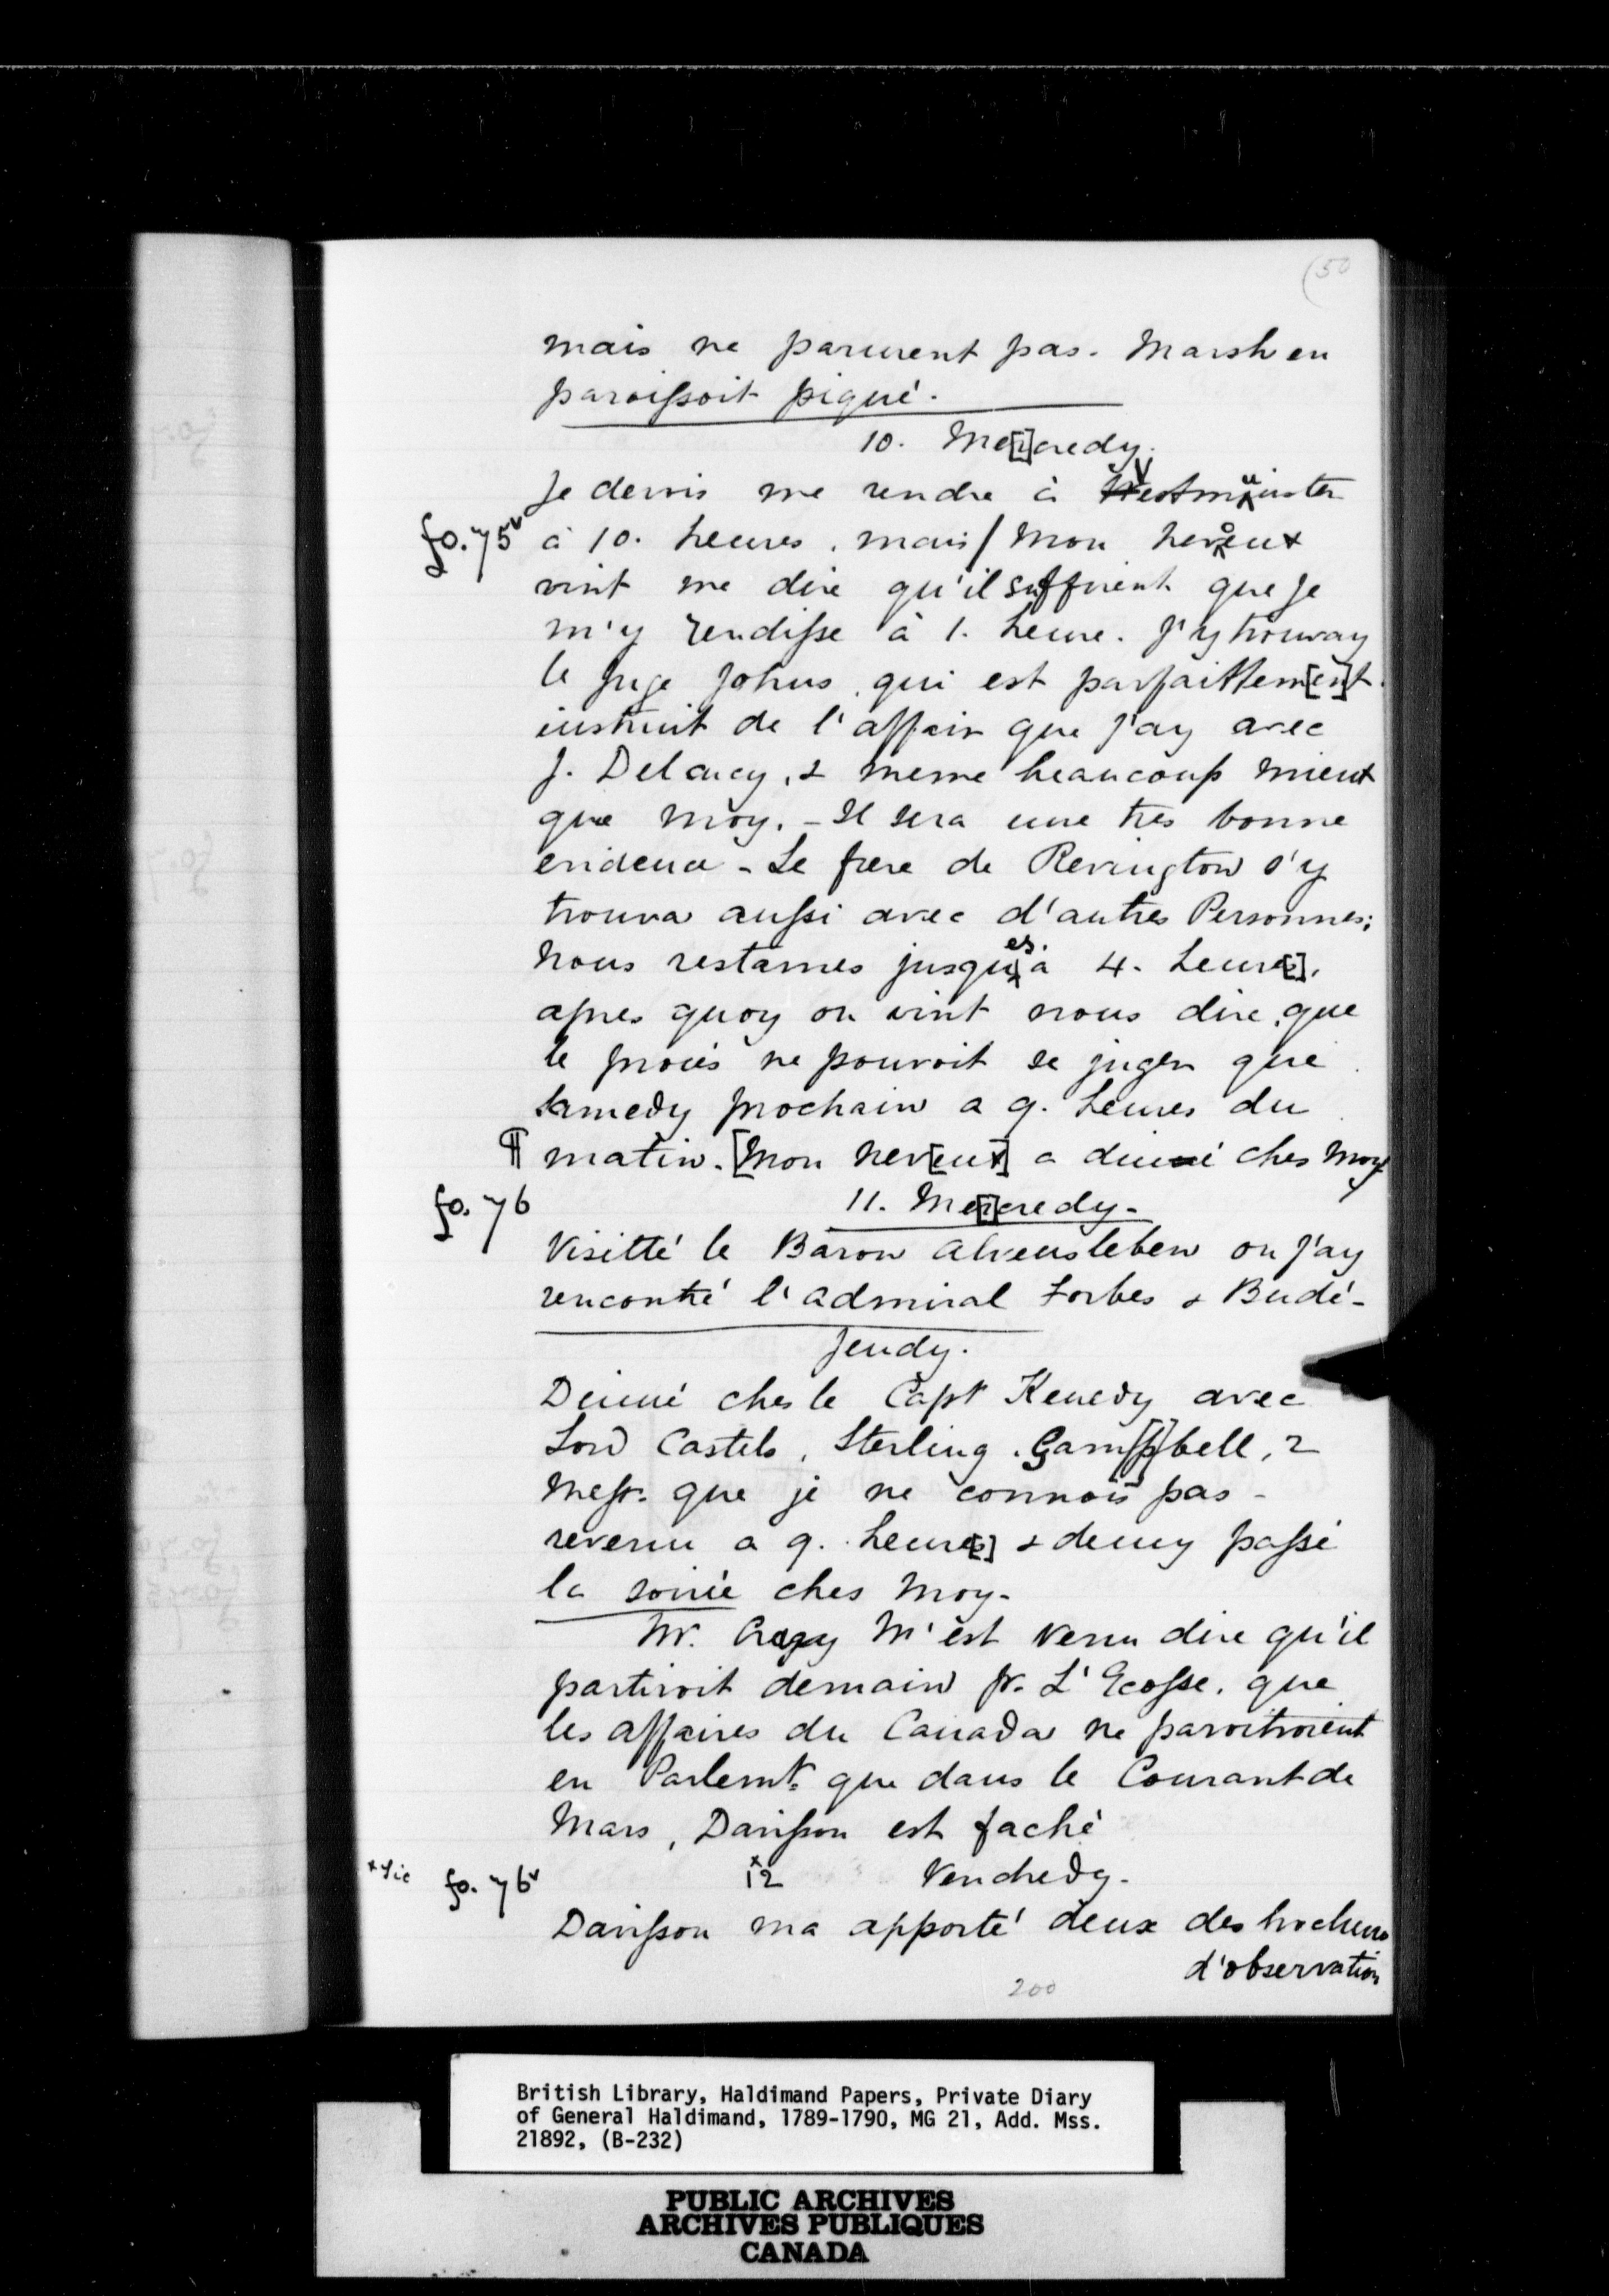 (50
mais ne parurent pas. Marsh en
paroissoit piqué.
10. Me[r]credy.
Je devois me rendre à Vestmuinster
fo. 75v à 10. heures, mais / mon neveux
vint me dire qu'il suffirent que je
m'y rendisse à 1. heure. J'y trouvay
le Juge Johns, qui est parfaittem[en]t
instruit de l'affair que j'ay avec
J. Delancy, & meme beaucoup mieux
que moy. - Il sera une tres bonne
evidence - Le frere de Revington s'y
trouva aussi avec d'autres Personnes;
nous restames jusques à 4. heure[s],
apres quoy on vint nous dire, que
le procés ne pouvoit se juger que
samedy prochain a 9. heures du
¶ matin. [Mon nev[eux] a dinné ches moy
fo. 76 11. Me[r]credy -
Visitté le Baron Alvensleben ou j'ay
rencontré l'admiral Forbes & Budé -
Jeudy.
Dinné ches le Capt Kenedy avec
Lord Castels, Sterling, Gam[p]bell, 2
Messrs. que je ne connois pas -
revenu a 9. heure[s] & demy passé
la soirée ches moy -
Mr. m'est venu dire qu'il
partiroit demain pr. L'Ecosse, que
les affaires du Canada ne paroitroient
en Parlemt. que dans le Courant de
Mars, Davisson est faché
x sic fo. 76v 12 x Vendredy -
Davisson ma apporté deux des brochures
d'observation
200
British Library, Haldimand Papers, Private Diary
of General Haldimand, 1789-1790, MG 21, Add. Mss.
21892, (B-232)
PUBLIC ARCHIVES
ARCHIVES PUBLIQUES
CANADA